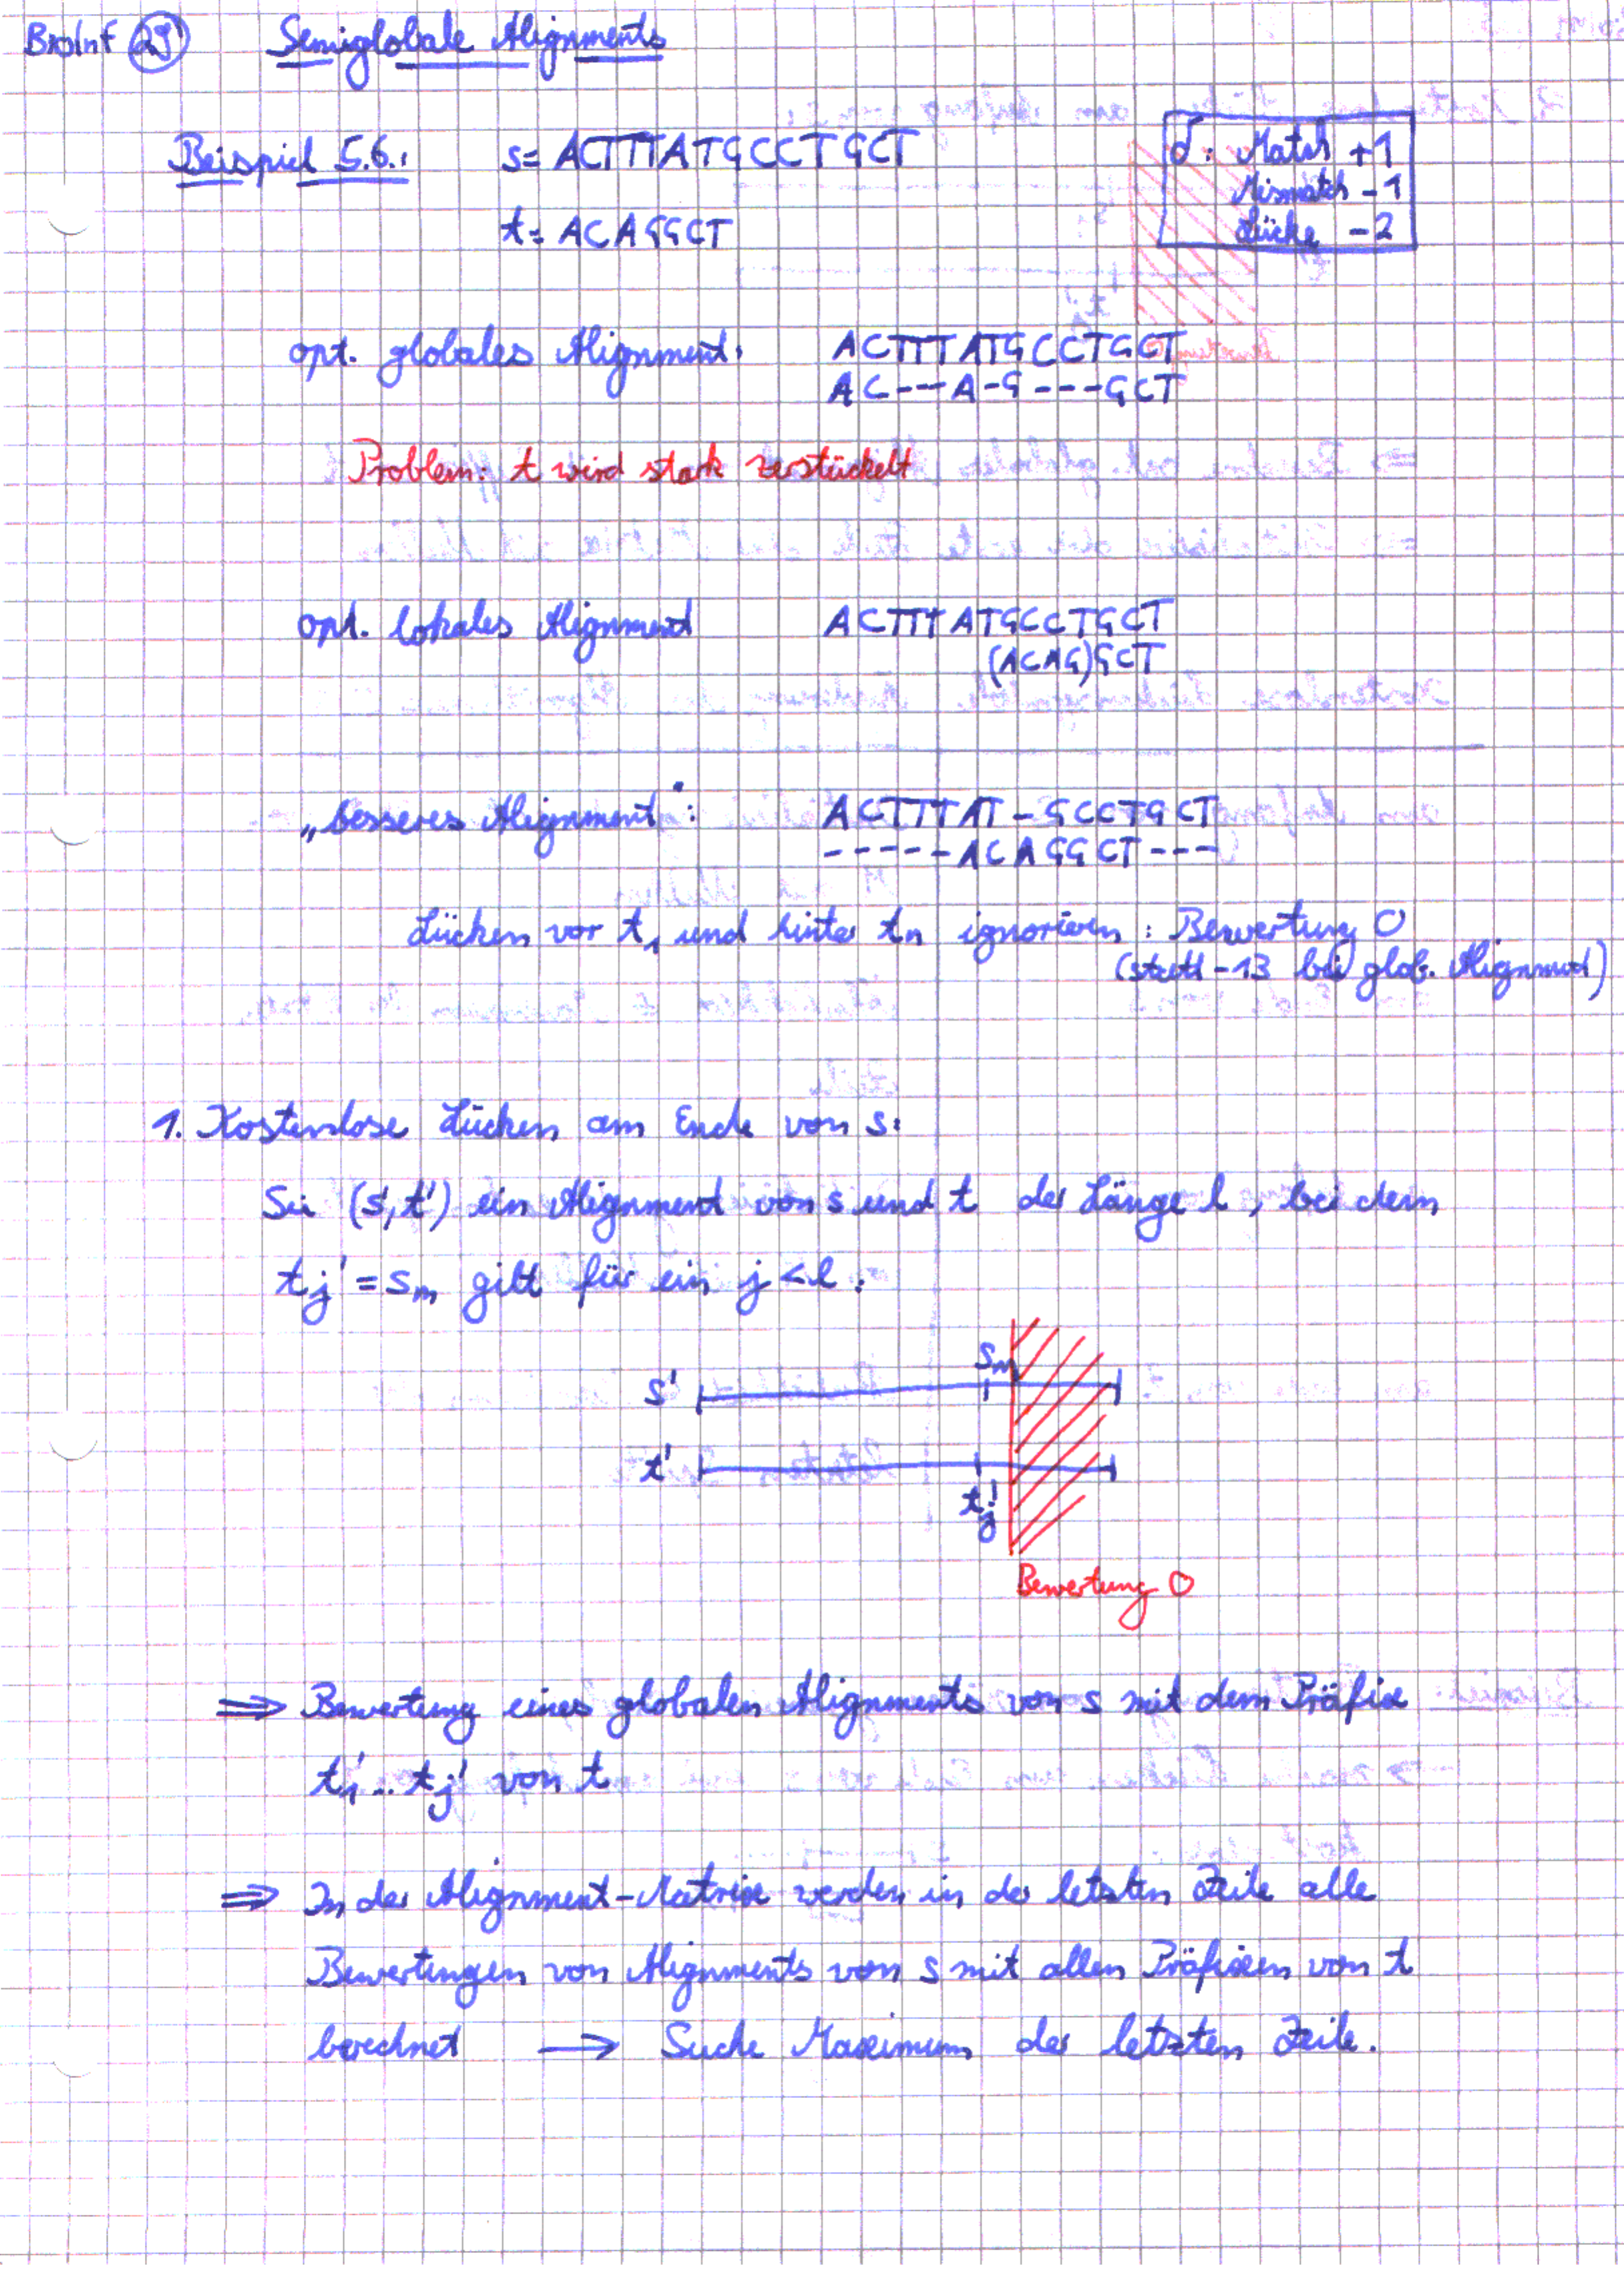 BioInf 29 Semiglobale Alignments
Beispiel 5.6.: s= ACTTTATGCCTGCT
t= ACAGGCT
δ: Match +1
Mismatch -1
Lücke -2
opt. globales Alignment: ACTTTATGCCTGCT
AC---A-G---GCT
Problem: t wird stark zerstückelt
opt. lokales Alignment ACTTTATGCCTGCT
(ACAG)GCT
„besseres Alignment": ACTTTAT-GCCTGCT
-----ACAGGCT---
Lücken vor t1 und hinter tn ignorieren: Bewertung 0
(statt -13 bei glob. Alignment)
1. Kostenlose Lücken am Ende von s:
Sei (s',t') ein Alignment von s und t der Länge l, bei dem
tj' = sm gilt für ein j < l:
sm
s'
t'
tj'
Bewertung 0
⇒ Bewertung eines globalen Alignments von s mit dem Präfix
t1'...tj' von t
⇒ In der Alignment-Matrix werden in der letzten Zeile alle
Bewertungen von Alignments von s mit allen Präfixen von t
berechnet → Suche Maximum der letzten Zeile.